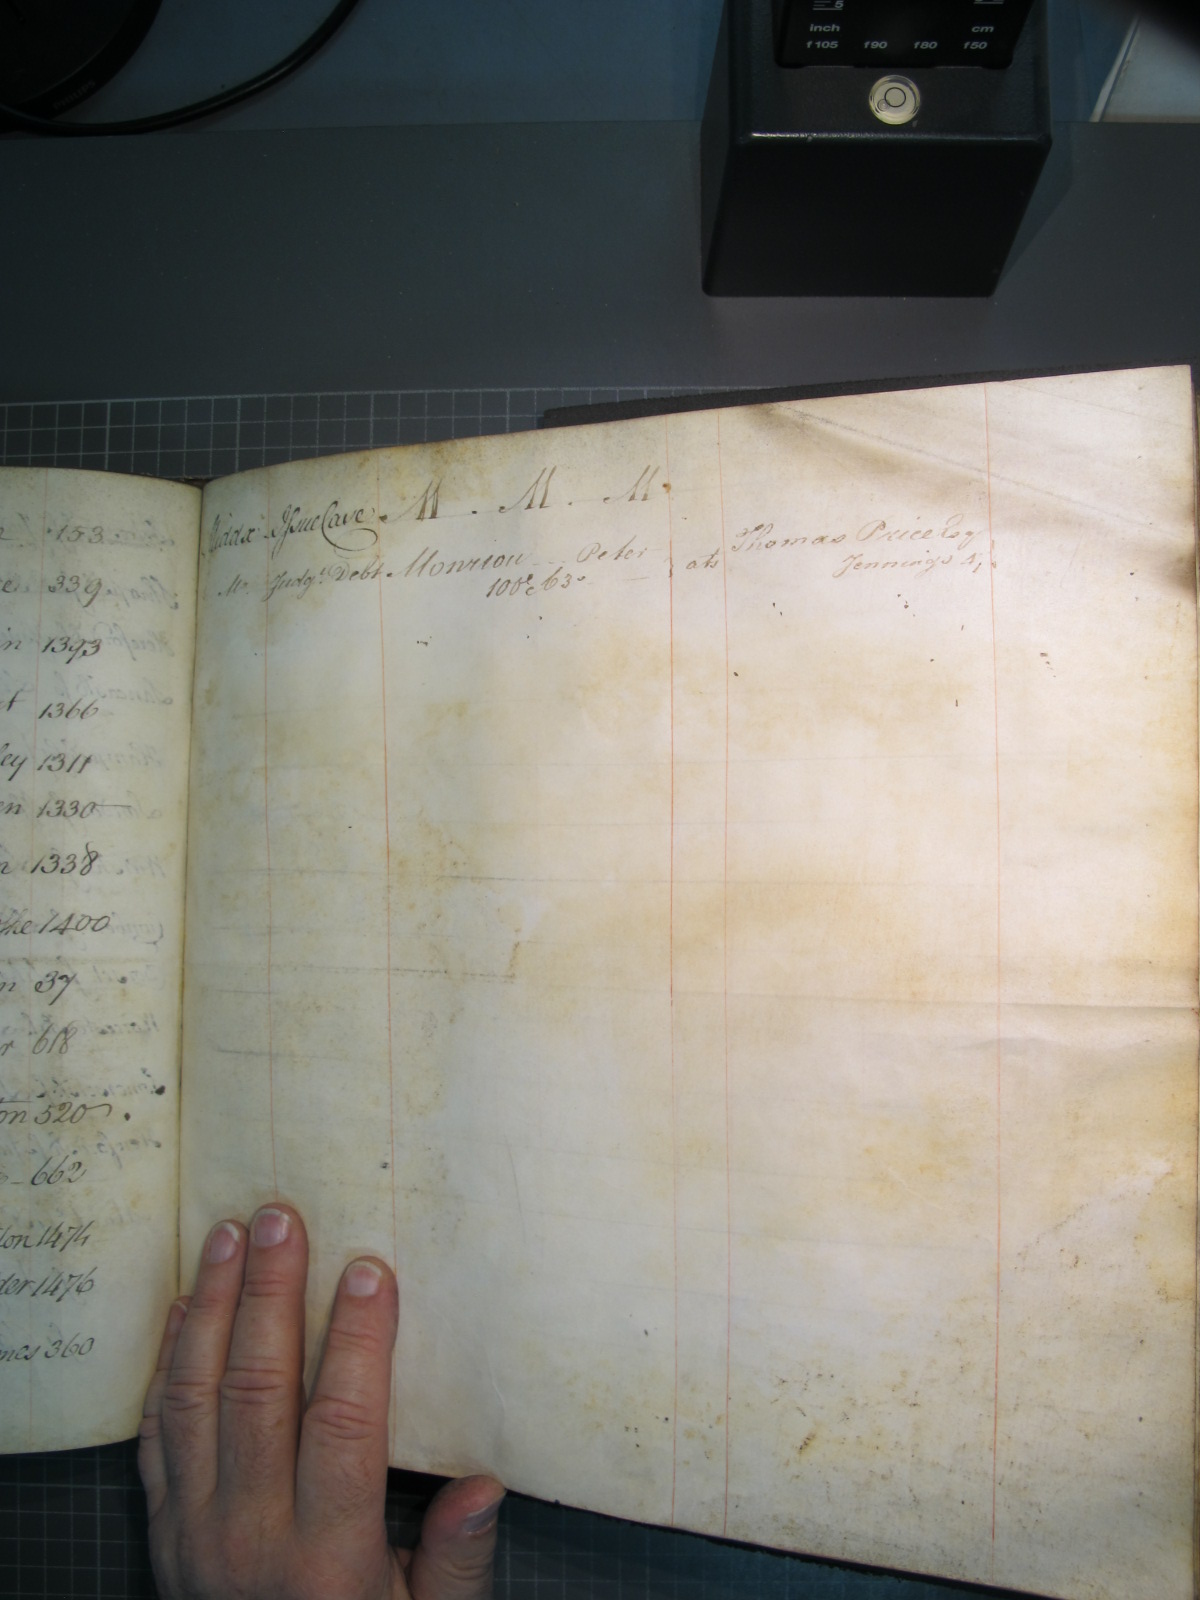 5
inch cm
f105 f90 f80 f50
PHILIPS
153
339
in 1393
1366
ley 1311
en 1330
1338
the 1400
37
r 618
on 520
662
ton 1474
der 1476
mes 360
Middx Issue Cave M . M . M
Mr. Judgt. Debt Monriou Peter ats Thomas Price Esq
100£ 63s Jennings 4